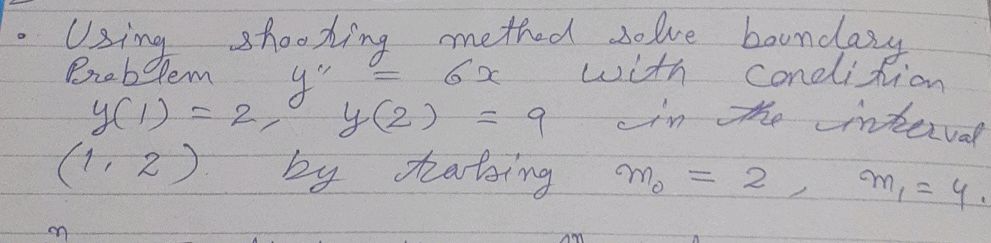 • Using shooting method solve boundary
Problem y'' = 6x with condition
y(1) = 2, y(2) = 9 in the interval
(1, 2) by taking m₀ = 2, m₁ = 4.